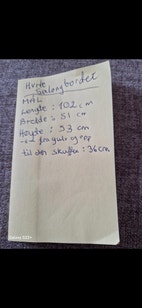 Hvite
Salongbordet
MÅL
Lengde : 102 cm
Bredde : 51 cm
Høyde : 53 cm
fra gulv og opp
til der skuffer : 36 cm